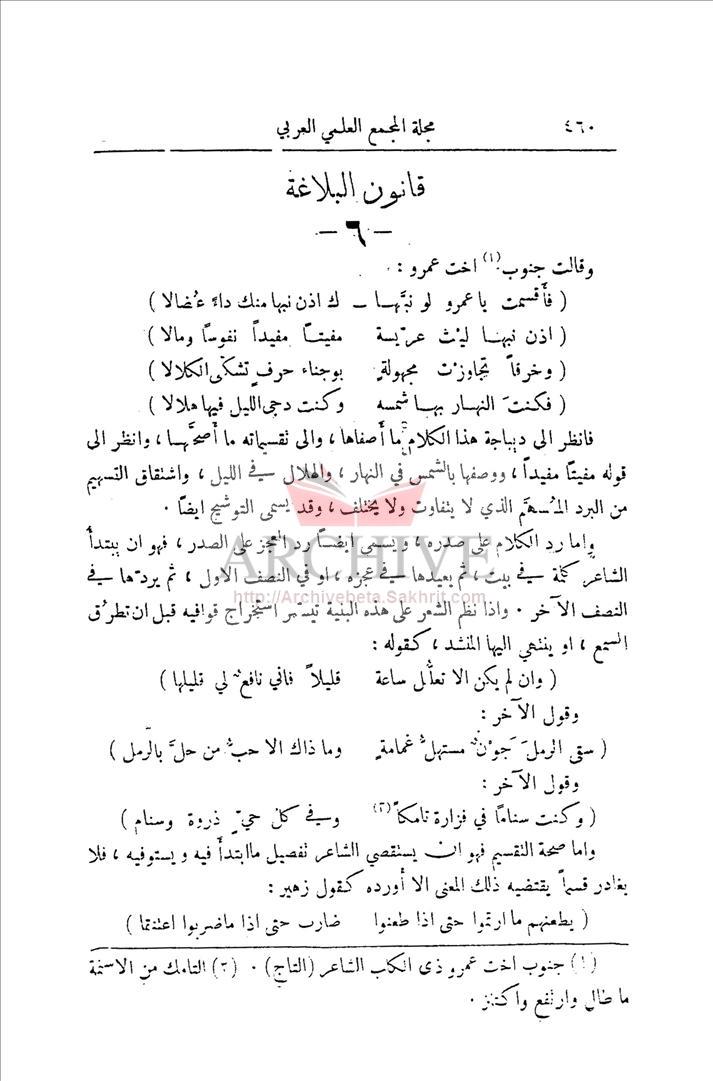 ٤٦٠ مجلة المجمع العلمي العربي
قانون البلاغة
— ٦ —
وقالت جنوب (١) اخت عمرو :
( فأَقسمت يا عمرو لو نبَّهـا — ك اذن نبها منك داءً عُضالا )
( اذن نبهـا ليْث عرّيسة مفيتـاً مفيداً نفوساً ومالا )
( وخرقاً تجاوزْت مجهولةٍ بوجناء حرفٍ تشكّى الكلالا )
( فكنتَ النهـار بهـا شمسه وكنت دجى الليل فيها هلالا )
فانظر الى ديباجة هذا الكلام ما أَصفاها ، والى نقسياته ما أَصحَّهـا ، وانظر الى
قوله مفيتاً مفيداً ، ووصفها بالشمس في النهار ، والهلال في الليل ، واشتقاق التسهيم
من البرد المُسهَّم الذي لا يتفاوت ولا يختلف ، وقد يسمى التوشيح ايضاً .
واما رد الكلام على صدره ، ويسمى ايضاً رد العجز على الصدر ، فهو ان يبتدأَ
الشاعر كلمة في بيت ، ثم يعيدها في عجزه ، او في النصف الاول ، ثم يردّها في
النصف الآخر . واذا نظم الشعر على هذه البنية تيسّر استخراج قوافيه قبل ان تطرُق
السمع ، او ينتهي اليها المنشد ، كقوله :
( وان لم يكن الا تعلُّل ساعة قليلاً فاني نافعٌ لي قليلها )
وقول الآخر :
( سقى الرملَ جوْنٌ مستهلٌّ غمامةٍ وما ذاك الا حبُّ من حلَّ بالرمل )
وقول الآخر :
( وكنت سناماً في فزارة تامكاً (٢) وفي كل حيٍّ ذروة وسنام )
واما صحة التقسيم فهو ان يستقصي الشاعر تفصيل ما ابتدأَ فيه ويستوفيه ، فلا
يغادر قسماً يقتضيه ذلك المعنى الا أَورده كقول زهير :
( يطعنهم ما ارتموا حتى اذا طعنوا ضارب حتى اذا ماضربوا اعتنقا )
(١) جنوب اخت عمرو ذي الكاب الشاعر (التاج) . (٢) التامك من الاسنمة
ما طال وارتفع واكتنز .
ARCHIVE
http://Archivebeta.Sakhrit.com